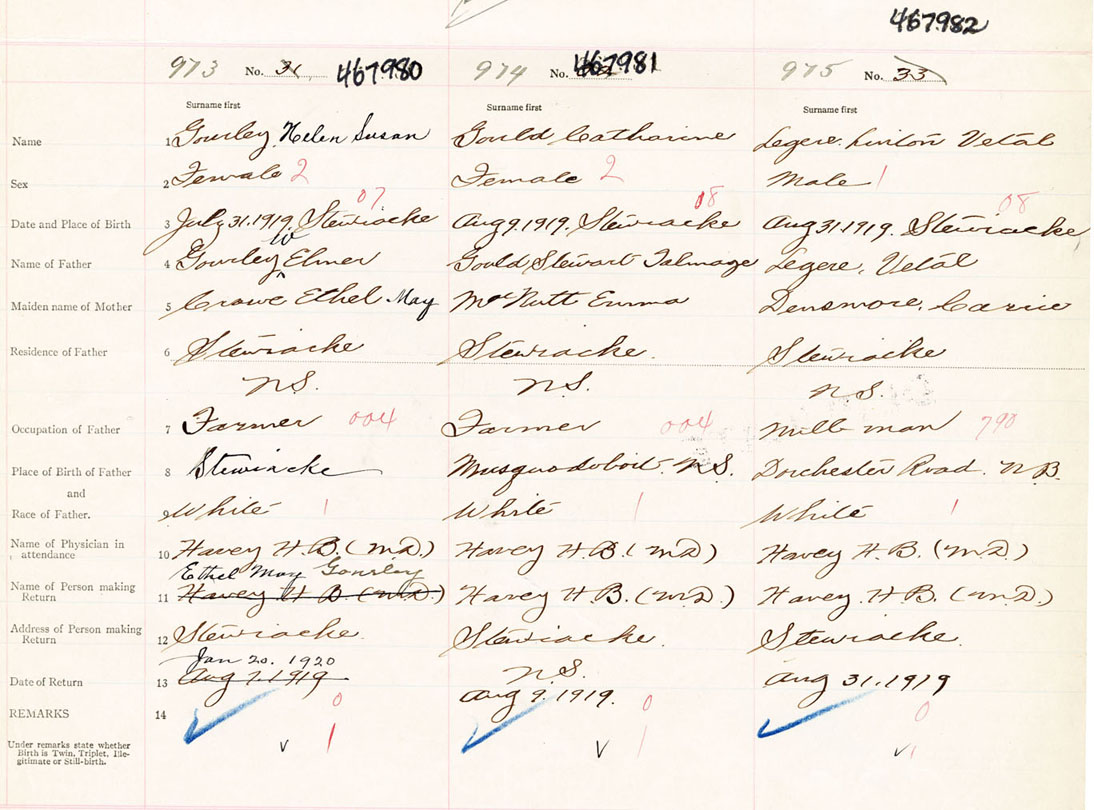 467982
973 No. 31 467980 974 No. 467981 975 No. 33
Surname first Surname first Surname first
Name 1 Gourley, Helen Susan Gould Catharine Legere. Linton Vetal
Sex 2 Female 2 Female 2 Male 1
07 18 08
Date and Place of Birth 3 July 31.1919. Stewiacke Aug 9.1919. Stewiacke Aug 31.1919. Stewiacke
W
Name of Father 4 Gourley ^ Elmer Gould Stewart Talmage Legere, Vetal
Maiden name of Mother 5 Crowe Ethel May McNutt Emma Densmore, Carrie
Residence of Father 6 Stewiacke Stewiacke. Stewiacke
N.S. N.S. N.S.
Occupation of Father 7 Farmer 004 Farmer 004 Mill man 790
Place of Birth of Father 8 Stewiacke Musquodoboit. N.S. Dorchester Road. N.B.
and
Race of Father. 9 White 1 White 1 White 1
Name of Physician in
attendance 10 Havey H.B. (M.D.) Havey H.B. (M.D.) Havey H.B. (M.D.)
Ethel May Gourley
Name of Person making
Return 11 Havey H B (M.D.) Havey H B. (M.D.) Havey. H.B. (M.D.)
Address of Person making
Return 12 Stewiacke. Stewiacke. Stewiacke.
Jan 20. 1920 N.S.
Date of Return 13 Aug 7.1919 Aug 9.1919. Aug 31.1919
REMARKS 14 0 0 0
Under remarks state whether
Birth is Twin, Triplet, Ille-
gitimate or Still-birth.
v 1 v 1 v 1